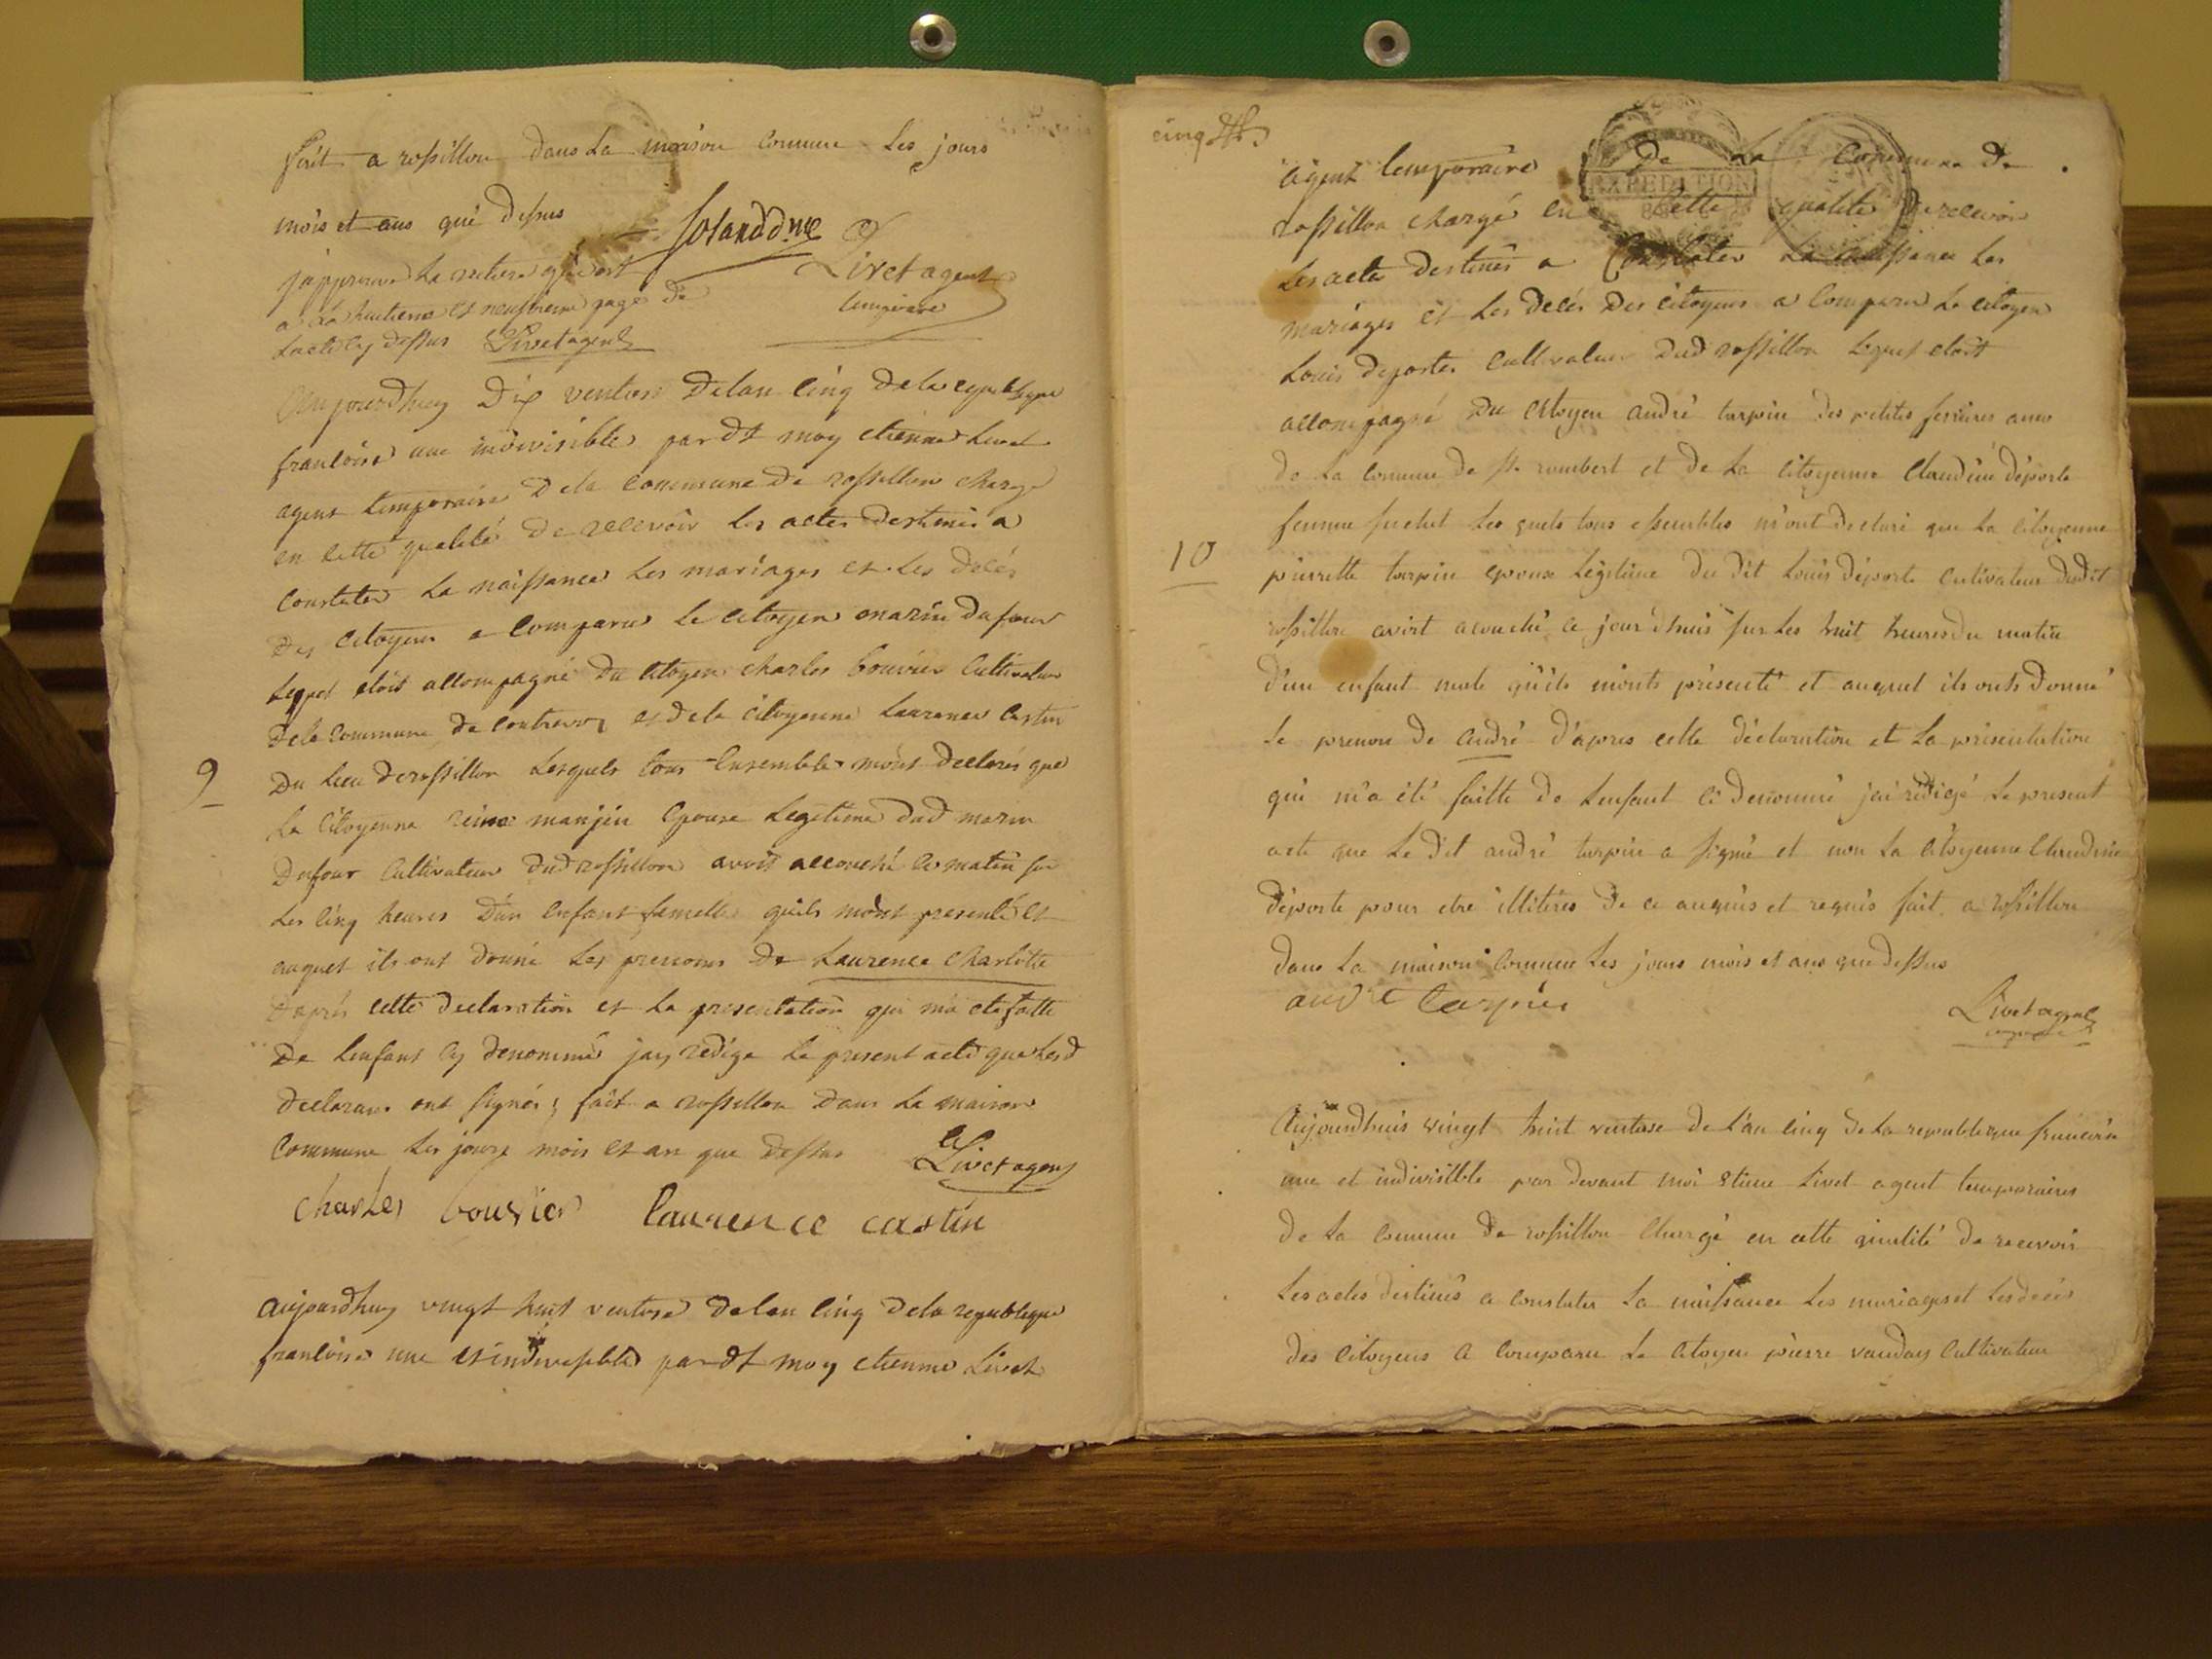 fait a rossillon dans la maison commune les jours
mois et ans que dessus
Livet agent
temporaire
japprouve la
a la huitieme et neufvieme page de
lacte cy dessus Livet agent
Aujourdhuy dix ventose delan cinq dela republique
francoise une indivisible pardt moy etienne Livet
agent temporaire dela commune de rossillon charge
en cette qualité de recevoir les actes destinés a
constater la naissance les mariages et les décés
des citoyens a comparu le citoyen marin dufour
lequel etoit accompagné du citoyen charles bouvier cultivateur
dela commune de contrevoz et dela citoyenne Laurence castin
9
du lieu derossillon lesquels tous ensemble mont declarés que
la citoyenne reine manjeu epouse legitime dud marin
dufour cultivateur dud rossillon avoit accouché ce matin sur
les cinq heures dun enfant femelle quils mont presenté et
auquel ils ont donné les prenoms de Laurence Charlotte
daprés cette declaration et la presentation qui ma ete faitte
de lenfant cy denommé jay redige le present acte que lesd
declarans ont signés ; fait a rossillon dans la maison
commune les jours mois et an que dessus
Livet agent
charles bouvier Laurence castin
aujourdhuy vingt huit ventose delan cinq dela republique
francoise une et indivisible pardt moy etienne Livet
cinq
agent temporaire de la commune de
EXPEDITION
rossillon chargé en cette qualité de recevoir
les actes destinés a constater la naissance les
mariages et les décés des citoyens a comparu le citoyen
Louis deporte cultivateur dud rossillon lequel etoit
accompagné du citoyen andré turpin des petites
de la commune de st rambert et de la citoyenne Claudine déporte
femme les quels tous assemblés m'ont declaré que la citoyenne
10
pierrette turpin epouse légitime du dit Louis déporte cultivateur dudit
rossillon avoit acouché ce jour d'huis sur les huit heures du matin
d'un enfant male qu'ils m'ont présenté et auquel ils ont donné
le prenom de andré d'apres cette déclaration et la présentation
qui m'a été faitte de l'enfant ci denommé j'ai rédigé le present
acte que le dit andré turpin a signé et non la citoyenne Claudine
déporte pour etre illitérée de ce anquis et requis fait a rossillon
dans la maison commune les jours mois et ans que dessus
andre turpin
Livet agent
Aujourdhuis vingt huit ventose de l'an cinq de la republique
une et indivisible par devant moi etiene Livet agent temporaire
de la comune de rossillon chargé en cette qualité de recevoir
les actes destinés a constater la naissance les mariages et les décés
des citoyens a comparu le citoyen pierre vauday cultivateur